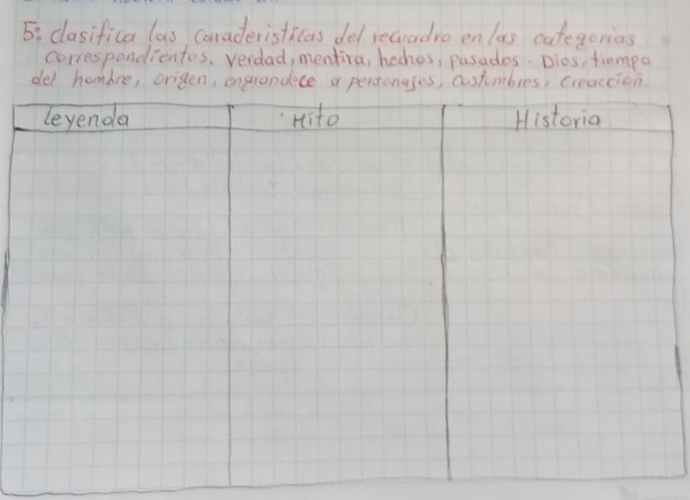 5: clasifica las caracteristicas del recuadro en las categorias
correspondientes. verdad, mentira, hechos, pasados. Dios, tiempo
del hombre, origen, engrandece a personajes, costumbres, creacción.
Leyenda Mito Historia